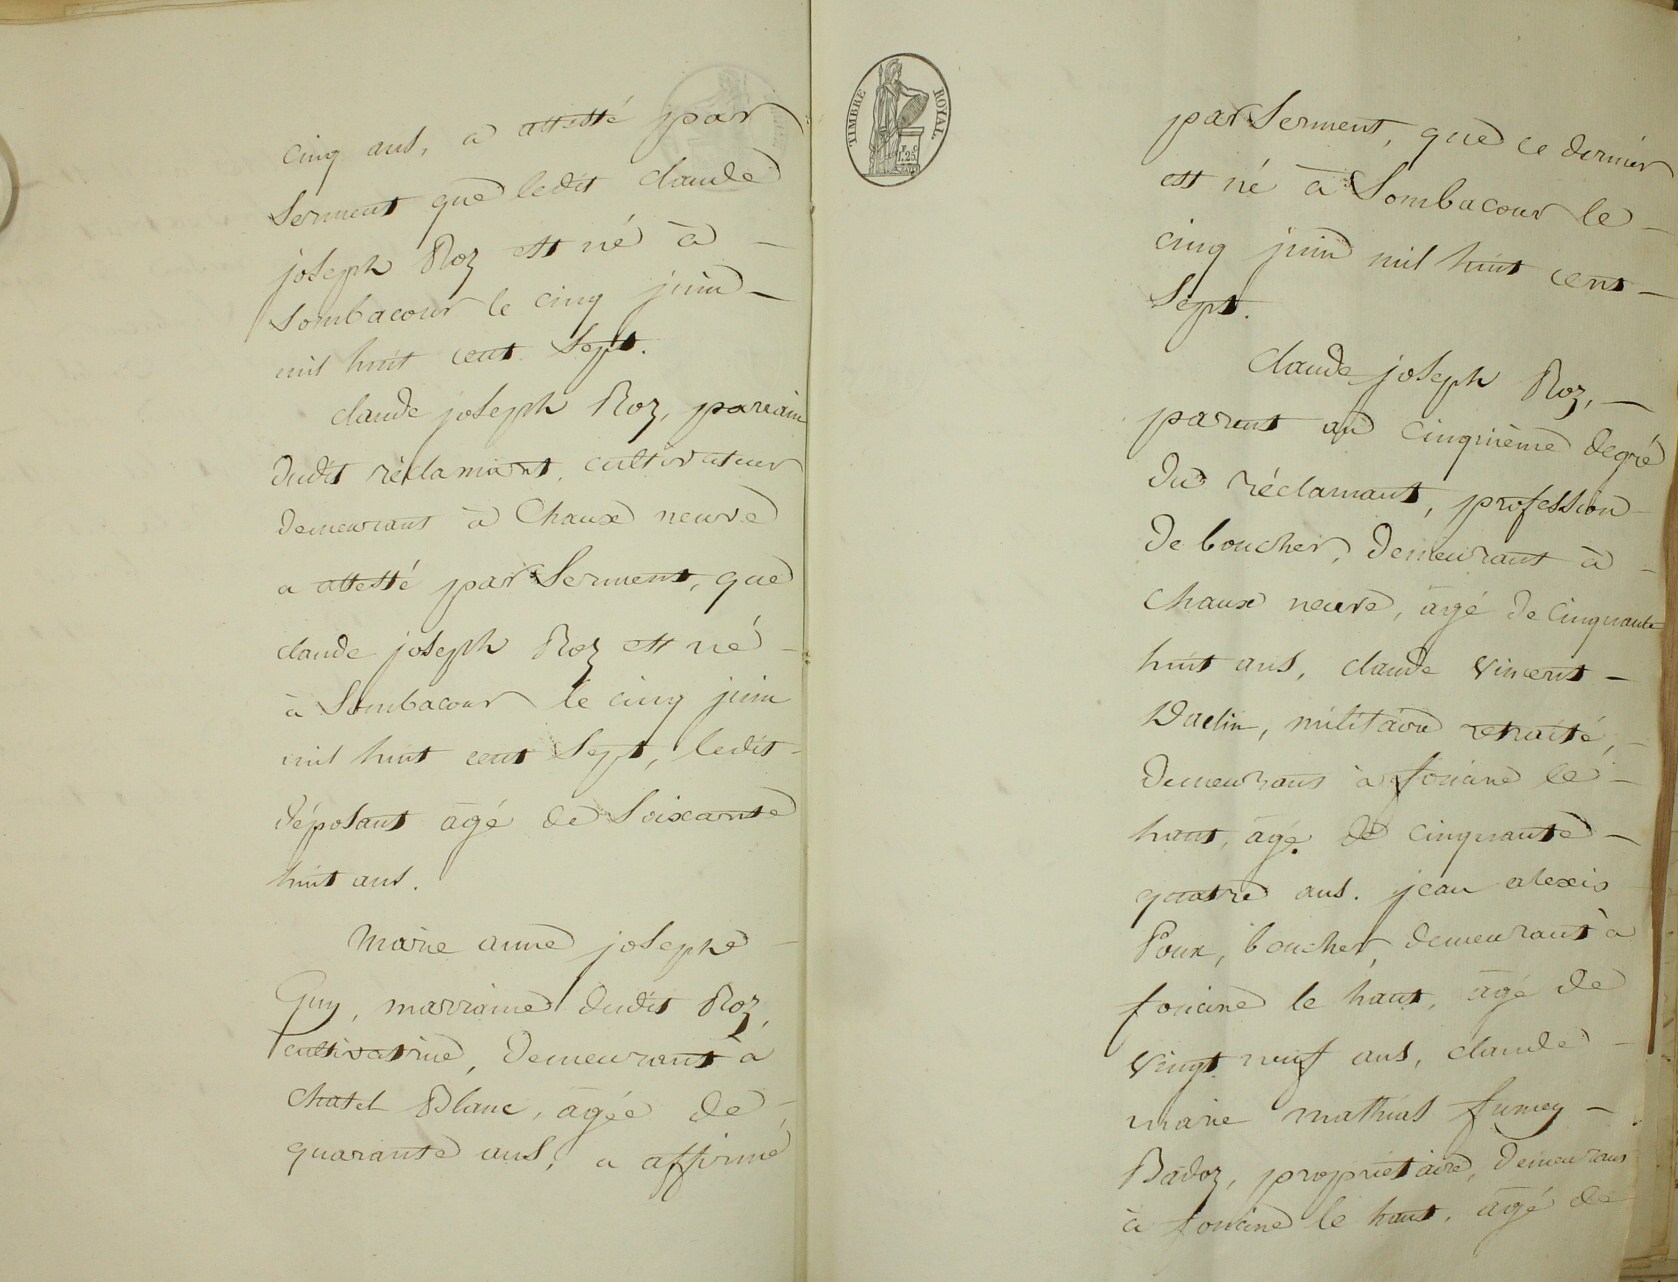 cinq ans, a attesté par
serment que ledit claude
joseph Roz est né à -
Sombacour le cinq juin -
mil huit cent sept.
claude joseph Roz, parrain
dudit réclamant, cultivateur
demeurant à Chaux neuve
a attesté par serment, que
claude joseph Roz est né -
à Sombacour le cinq juin
mil huit cent sept, ledit -
déposant âgé de soixante
huit ans.
Marie anne josephe -
Guy, marraine dudit Roz,
cultivatrice, demeurant à
chatel Blanc, âgée de -
quarante ans, a affirmé
TIMBRE ROYAL
1.25
par serment, que ce dernier
est né à Sombacour le -
cinq juin mil huit cent -
sept.
claude joseph Roz, -
parent au cinquième degré
du réclamant, profession
de boucher, demeurant à -
chaux neuve, âgé de cinquante
huit ans, claude vincent -
Daclin, militaire retraité, -
demeurant à foncine le -
haut, âgé de cinquante -
quatre ans. jean alexis
Poux, boucher, demeurant à
foncine le haut, âgé de
vingt neuf ans, claude -
marie mathias fumey -
Badoz, propriétaire, demeurant
à foncine le haut, âgé de